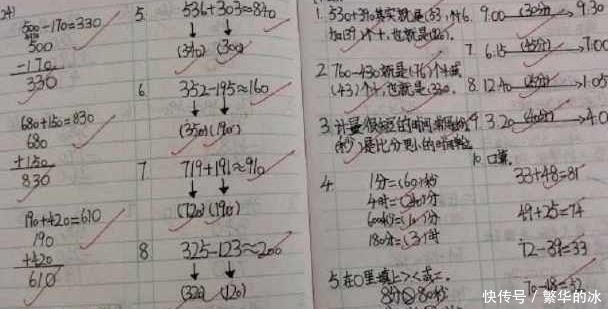 500-170=330
500
-170
330
680+150=830
680
+150
830
190+420=610
190
+420
610
5. 536+303≈840
(540) (300)
6 352-195≈160
(350) (190)
7. 719+191≈910
(720) (190)
8. 325-123≈200
(320) (120)
2. 760-430就是(76)个十减
(43)个十,也就是(330)
3. 计量很短的时间常用
(秒)是比分更小的时间单位
4. 1分=(60)秒
4时=(240)分
600秒=(10)分
180分=(3)时
5.在○里填上><或=。
8分 80秒
6. 9:00 (30分) 9:30
7. 6:15 (45分) 7:00
8. 12:40 (25分) 1:05
9. 3:20 (40分) 4:0
10. 口算。
33+48=81
49+25=74
72-39=33
70-18=52
快传号 / 繁华的冰